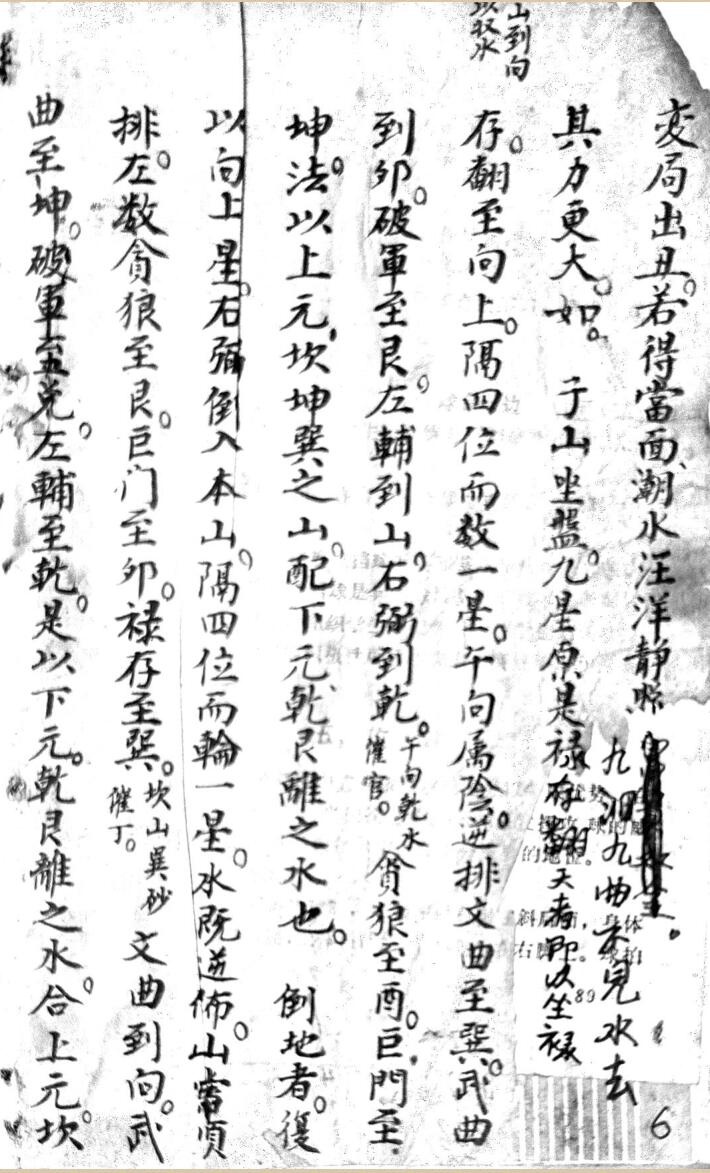 山到向
变局出丑。若得當面潮水汪洋靜
九洄九曲不見水去
其力更大。如。子山坐盤。九星原是禄存翻天者即以坐禄
存。翻至向上。隔四位而数一星。午向属陰。逆排文曲至巽。武曲
到卯。破軍至艮。左輔到山。右弼到乾。午向乾水催官。貪狼至酉。巨門至
坤法以上元坎坤巽之山。配下元乾艮離之水也。倒地者。復
以向上星。右弼倒入本山。隔四位而輪一星。水既逆佈。山當順
排。左数貪狼至艮。巨门至卯。禄存至巽。坎山巽砂催丁。文曲到向。武
曲至坤。破軍至兑。左輔至乾。是以下元。乾艮離之水。合上元坎。
6